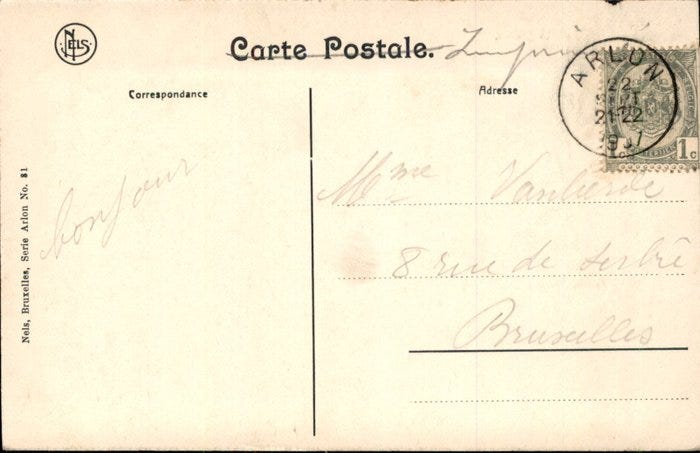 NELS
Carte Postale. Imprimé
Correspondance
Adresse
ARLON
22
21-22
1c
bonjour
Mme Vanlierde
8 rue de
Bruxelles
Nels, Bruxelles, Serie Arlon No. 81